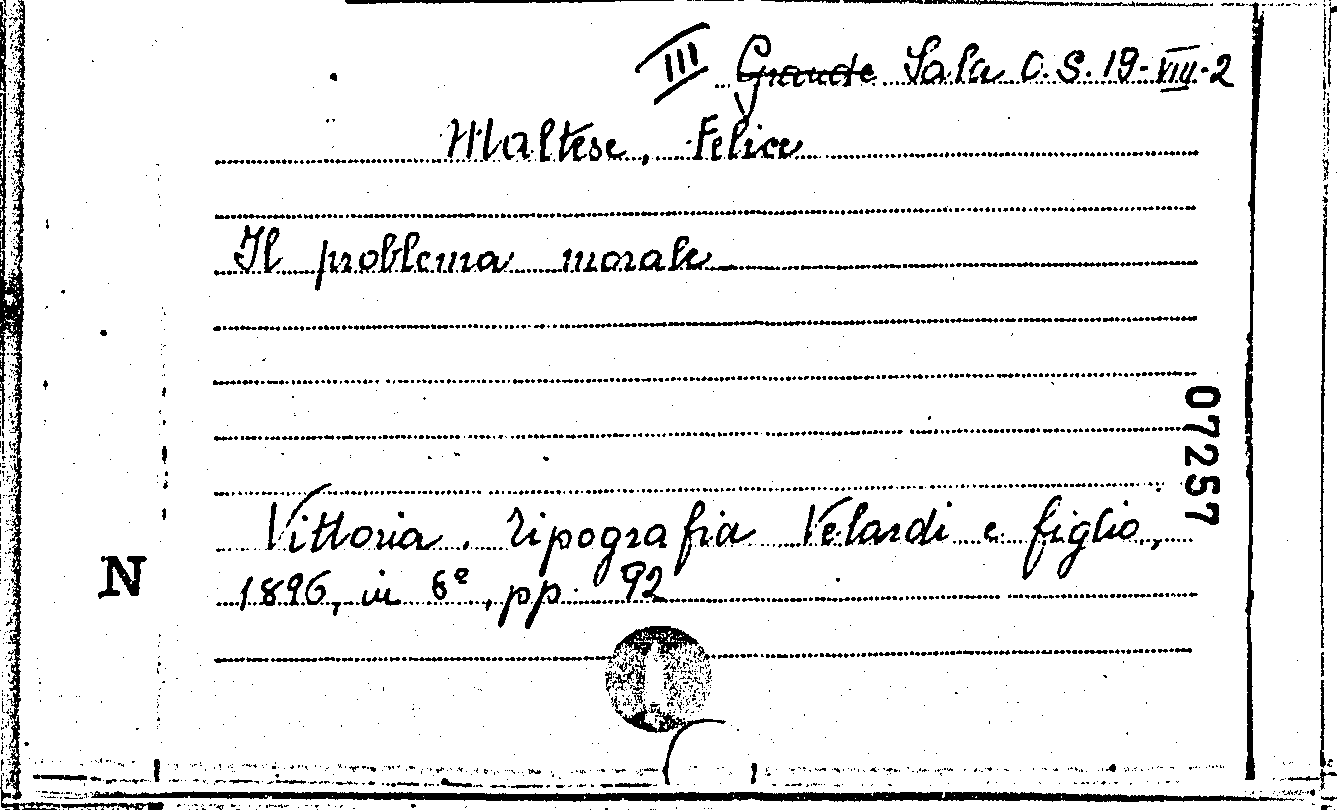 III Grande Sala O.S. 19-VIII-2
Maltese, Felice
Il problema morale
07257
Vittoria. Tipografia Velardi e figlio,
N
1896, in 8º, pp. 92